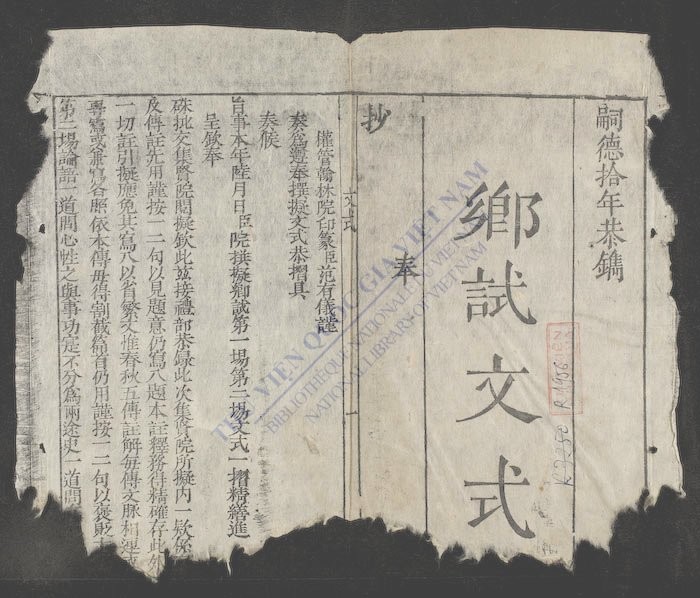 嗣德拾年恭鐫
鄉試文式
奉
抄
文式
權管翰林院印篆臣范有儀謹
奏爲遵奉撰擬文式恭摺具
奏候
旨事本年陸月日臣院撰擬鄉試第一場第二場文式一摺精繕進
呈欽奉
硃批交集賢院閱擬欽此茲接禮部恭錄此次集賢院所擬內一欵係
及傳註先用謹按一二句以見題意仍寫入題本註釋務得精確存此外
一切註引擬應免其寫入以省繁文惟春秋五傳註解每傳文脈相連
專寫或兼寫各照依本傳毋得割截篇首仍用謹按一二句以褒貶
第二場論語一道問心性之與事功寔不分爲兩途史一道問
THƯ VIỆN QUỐC GIA VIỆT NAM
BIBLIOTHÈQUE NATIONALE DU VIETNAM
NATIONAL LIBRARY OF VIETNAM
R.1956